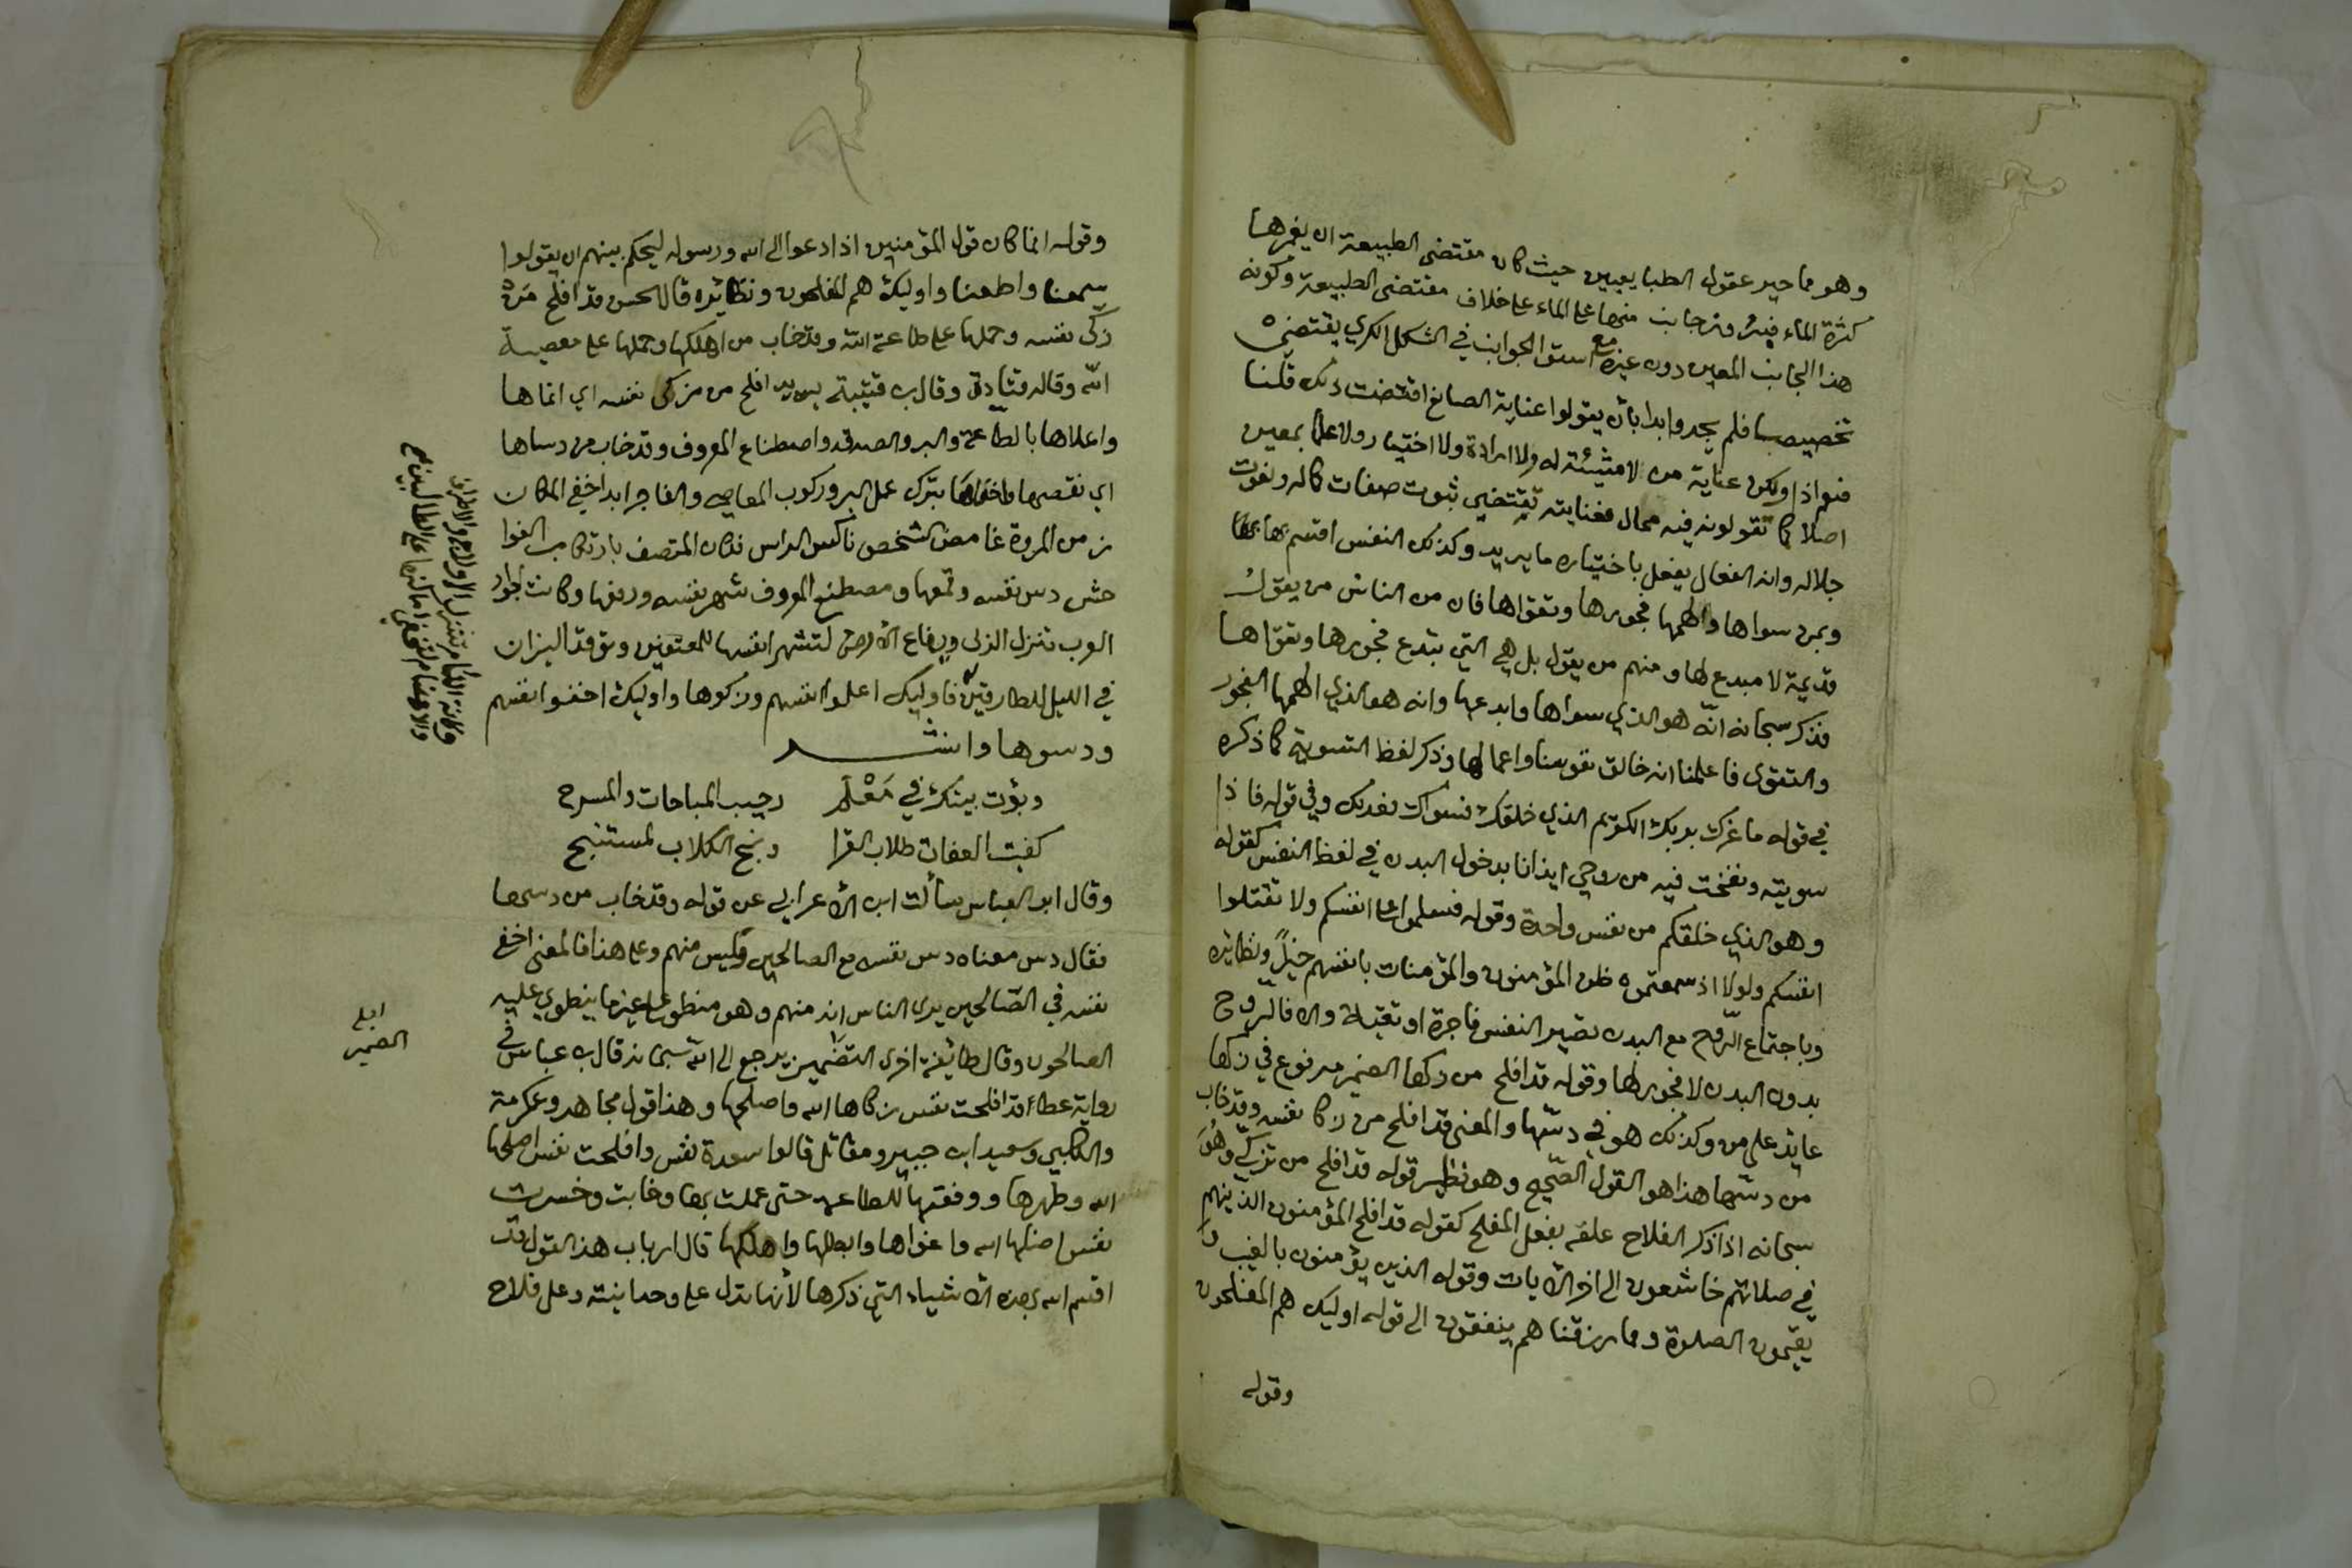 وهو مما حير عقول الطبايعيين حيث كان مقتضى الطبيعة ان يغمرها
كثرة الماء فبرز جانب منها على الماء على خلاف مقتضى الطبيعة وكونه
هذا الجانب المعين دون غيره مع استوا الجوانب في الشكل الكري يقتضي
تخصيصا فلم يجدوا بدا بان يقولوا عناية الصانع اقتضت ذلك قلنا
فنعم اذا ولكن عناية من لا مشيئة له ولا ارادة ولا اختيار ولا علم بمعين
اصلا كما تقولونه فيه محال فعنايته تقتضي ثبوت صفات كماله ونعوت
جلاله وانه الفعال يفعل باختياره ما يريد وكذلك النفس اقسم بها
وبمن سواها والهمها فجورها وتقواها فان من الناس من يقول
قديمة لا مبدع لها ومنهم من يقول بل هي التي تبدع فجورها وتقواها
فذكر سبحانه انه هو الذي سواها وابدعها وانه هو الذي الهمها الفجور
والتقوى فاعلمنا انه خالق نفوسنا واعمالها وذكر لفظ التسوية كما ذكره
في قوله ما غرك بربك الكريم الذي خلقك فسواك فعدلك وفي قوله فاذا
سويته ونفخت فيه من روحي ايذانا بدخول البدن في لفظ النفس كقوله
وهو الذي خلقكم من نفس واحدة وقوله فسلموا على انفسكم ولا تقتلوا
انفسكم ولولا اذ سمعتموه ظن المؤمنون والمؤمنات بانفسهم خيرا ونظائره
وباجتماع الروح مع البدن تصير النفس فاجرة او تقية والا فالروح
بدون البدن لا فجور لها وقوله قد افلح من زكها الضمير مرفوع في زكها
عايد على من وكذلك هو في دسها والمعنى قد افلح من زكا نفسه وقد خاب
من دسها هذا هو القول الصحيح وهو نظير قوله قد افلح من تزكى وهو
سبحانه اذا ذكر الفلاح علقه بفعل المفلح كقوله قد افلح المؤمنون الذينهم
في صلاتهم خاشعون الى اخر الايات وقوله الذين يؤمنون بالغيب و
يقيمون الصلوة ومما رزقناهم ينفقون الى قوله اوليك هم المفلحون
وقوله
وقوله انما كان قول المؤمنين اذا دعوا الى الله ورسوله ليحكم بينهم ان يقولوا
سمعنا واطعنا واوليك هم المفلحون ونظائره قال الحسن قد افلح من
زكى نفسه وحملها على طاعة الله وقد خاب من اهلكها وحملها على معصية
الله وقاله قتادة وقال ب قتيبة يريد افلح من زكى نفسه اي انماها
واعلاها بالطاعة والبر والصدقه واصطناع المعروف وقد خاب من دساها
اي نقصها واخفاها بترك عمل البر وركوب المعاصي والفاجر ابدا خفي المكان
زمن المروة غامض الشخص ناكس الراس فكان المتصف بارتكاب الفوا
حش دس نفسه وقمعها ومصطنع المعروف شهر نفسه ورفعها وكانت اجواد
العرب تنزل الذلى ويفاع الارض لتشهر انفسها للمعتفين وتوقد النيران
في الليل للطارقين فاوليك اعلوا انفسهم وزكوها واوليك اخفوا انفسهم
ودسوها وانشد
وبؤت بيتك في مَعْلَم رحيب المباحات والمسرح
كفيت العفات طلاب القرا ونبح الكلاب لمستنبح
وقال ابو العباس سألت ابن الاعرابي عن قوله وقد خاب من دسها
فقال دس معناه دس نفسه مع الصالحين وليس منهم وعلى هذا فالمعنى اخفى
نفسه في الصالحين يرى الناس انه منهم وهو منطو على غير ما ينطوي عليه
الصالحون وقال طائفة اخرى الضمير يرجع الى الله سبحانه قال ب عباس في
رواية عطا قد افلحت نفس زكاها الله واصلحها وهذا قول مجاهد وعكرمة
والكلبي وسعيد ابن جبير ومقاتل قالوا سعدة نفس وافلحت نفس اصلحها
الله وطهرها ووفقها للطاعه حتى عملت بها وخابت وخسرت
نفس اضلها الله واغواها وابطلها واهلكها قال ارباب هذا القول قد
اقسم الله بهذه الاشياء التي ذكرها لأنها تدل على وحدانيته وعلى فلاح
وكانة اللئام تنزل الاولاج والاطراف
والاهضام لتخفي اماكنها على الطالبين صح
الضمير